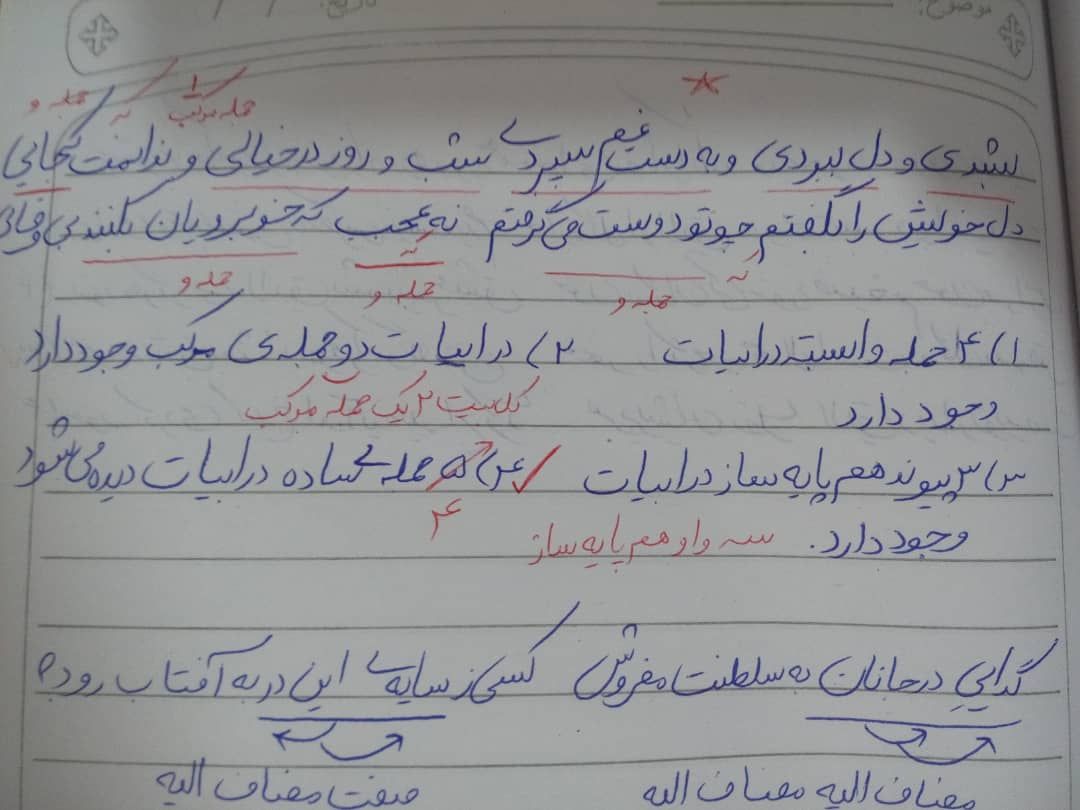 موضوع:
تاریخ: / /
۱
جمله مرکب
جمله و
بشدی و دل ببردی و به دست غم سپردی شب و روز در خیالی و ندانمت کجایی
دل خویش را بگفتم چو تو دوست می‌گرفتم نه عجب که خوبرویان بکنند بی وفایی
جمله و جمله و جمله و
۱) ۴ جمله وابسته در ابیات ۲) در ابیات دو جمله‌ی مرکب وجود دارد
وجود دارد کل بیت ۲ یک جمله مرکب
۳) ۳ پیوند هم پایه ساز در ابیات ۴) جمله‌ی ساده در ابیات دیده می‌شود
۴
وجود دارد. سه واو هم پایه ساز
گداییِ در جانان به سلطنت مفروش کسی ز سایه‌ی این در به آفتاب رود؟
مضاف الیه مضاف الیه صفت مضاف الیه